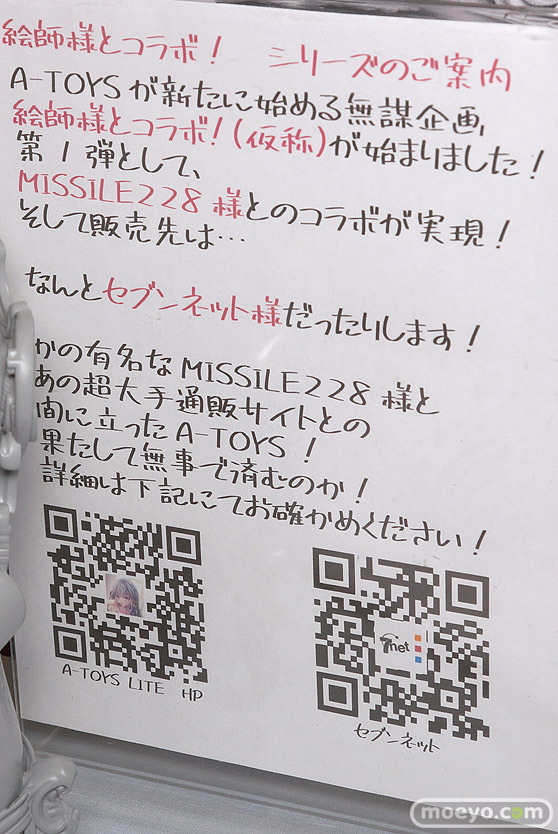 絵師様とコラボ！ シリーズのご案内
A-TOYSが新たに始める無謀企画,
絵師様とコラボ！(仮称)が始まりました！
第1弾として、
MISSILE228 様とのコラボが実現！
そして販売先は…
なんとセブンネット様だったりします！
かの有名なMISSILE228 様と
あの超大手通販サイトとの
間に立ったA-TOYS！
果たして無事で済むのか！
詳細は下記にてお確かめください！
net
A-TOYS LITE HP
セブンネット
moeyo.com